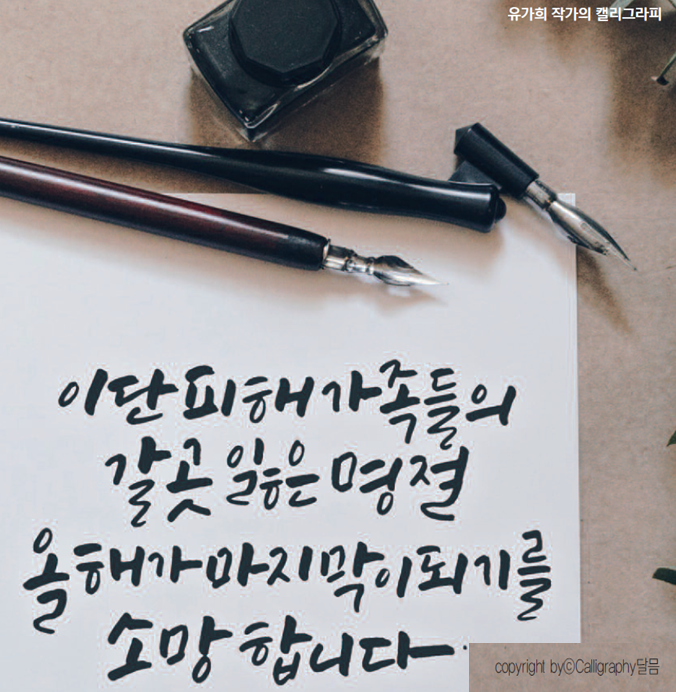 유가희 작가의 캘리그라피
이단 피해 가족들의
갈곳 잃은 명절
올해가 마지막이 되기를
소망 합니다.
copyright by©Calligraphy달믐